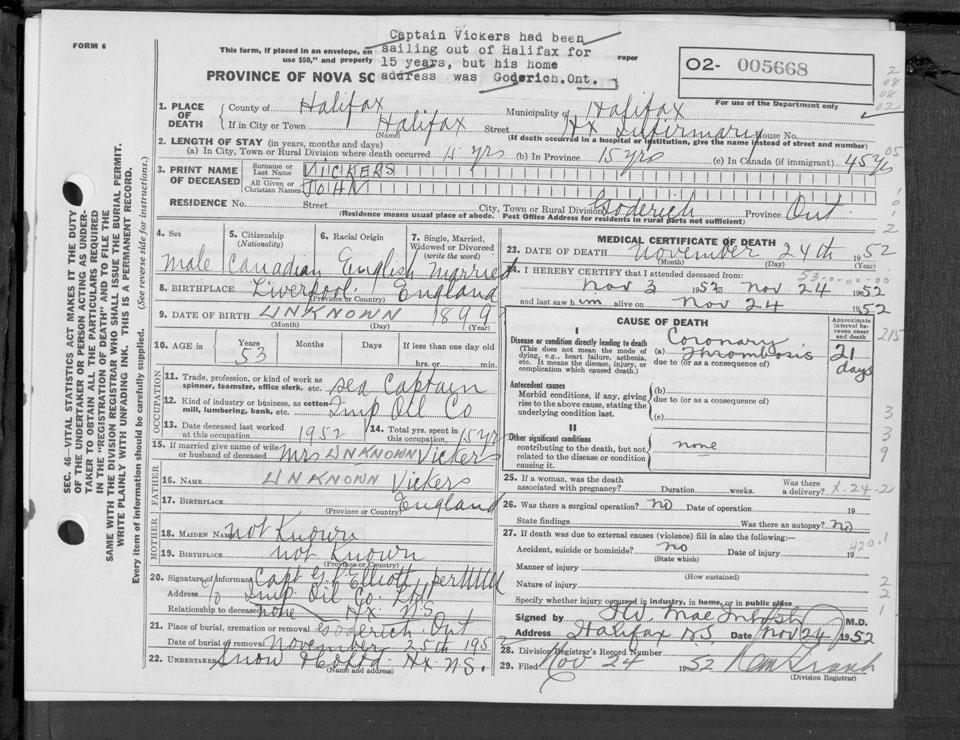 Captain Vickers had been
sailing out of Halifax for
15 years, but his home
address was Goderich.Ont.
FORM 6
This form, if placed in an envelope, on
use $50," and properly roper
PROVINCE OF NOVA SC
O2- 005668
For use of the Department only
2
08
08
02
1. PLACE OF DEATH
County of Halifax Municipality of Halifax
If in City or Town Halifax Street Hx Infirmary House No.
(Name) (If death occurred in a hospital or institution, give the name instead of street and number)
2. LENGTH OF STAY (in years, months and days)
(a) In City, Town or Rural Division where death occurred 15 yrs (b) In Province 15 yrs (c) In Canada (if immigrant) 45 yrs
05
3. PRINT NAME OF DECEASED
Surname or Last Name VICKERS
All Given or Christian Names JOHN
RESIDENCE No. Street City, Town or Rural Division Goderich Province Ont.
(Residence means usual place of abode. Post Office Address for residents in rural parts not sufficient)
4. Sex
male
5. Citizenship (Nationality)
Canadian
6. Racial Origin
English
7. Single, Married, Widowed or Divorced (write the word)
Married
8. BIRTHPLACE Liverpool England
(Province or Country)
9. DATE OF BIRTH UNKNOWN 1899
(Month) (Day) (Year)
10. AGE in Years 53 Months Days If less than one day old
hrs. or min.
OCCUPATION
11. Trade, profession, or kind of work as
spinner, teamster, office clerk, etc. Sea Captain
12. Kind of industry or business, as cotton-
mill, lumbering, bank, etc. Imp Oil Co
13. Date deceased last worked
at this occupation 1952
14. Total yrs. spent in
this occupation 15 yrs
15. If married give name of wife
or husband of deceased Mrs UNKNOWN Vickers
FATHER
16. NAME UNKNOWN Vickers
17. BIRTHPLACE England
(Province or Country)
MOTHER
18. MAIDEN NAME not Known
19. BIRTHPLACE not Known
(Province or Country)
20. Signature of informant Capt Elliott per
Address c/o Imp. Oil Co. Ltd
Relationship to deceased none Hx. N.S
21. Place of burial, cremation or removal Goderich Ont
Date of burial November 25th 195
22. UNDERTAKER Snow Hx N.S.
(Name and address)
MEDICAL CERTIFICATE OF DEATH
23. DATE OF DEATH November 24th 1952
(Month) (Day) (Year)
24. I HEREBY CERTIFY that I attended deceased from:
53-00-00-00
Nov 3 1952 to Nov 24 1952
and last saw him alive on Nov 24 1952
CAUSE OF DEATH
Approximate interval between onset and death
I
Disease or condition directly leading to death
(This does not mean the mode of
dying, e.g., heart failure, asthenia,
etc. It means the disease, injury, or
complication which caused death.)
(a) Coronary Thrombosis
due to (or as a consequence of)
21 days
215
Antecedent causes
Morbid conditions, if any, giving
rise to the above cause, stating the
underlying condition last.
(b)
due to (or as a consequence of)
(c)
II
Other significant conditions
contributing to the death, but not
related to the disease or condition
causing it.
none
3
3
9
25. If a woman, was the death
associated with pregnancy? Duration weeks. Was there
a delivery? X-24-2
26. Was there a surgical operation? no Date of operation 19
State findings Was there an autopsy? no
27. If death was due to external causes (violence) fill in also the following:—
420-1
Accident, suicide or homicide? no Date of injury 19
(State which)
Manner of injury
(How sustained)
Nature of injury
Specify whether injury occurred in industry, in home, or in public place
2
2
1
Signed by MacIntosh M.D.
Address Halifax N.S. Date Nov 24 1952
28. Division Registrar's Record Number
29. Filed Nov 24 1952
(Division Registrar)
SEC. 46 VITAL STATISTICS ACT MAKES IT THE DUTY
OF THE UNDERTAKER OR PERSON ACTING AS UNDER-
TAKER TO OBTAIN ALL THE PARTICULARS REQUIRED
IN THE "REGISTRATION OF DEATH" AND TO FILE THE
SAME WITH THE DIVISION REGISTRAR WHO SHALL ISSUE THE BURIAL PERMIT.
WRITE PLAINLY WITH UNFADING INK. THIS IS A PERMANENT RECORD.
Every item of information should be carefully supplied. (See reverse side for instructions.)